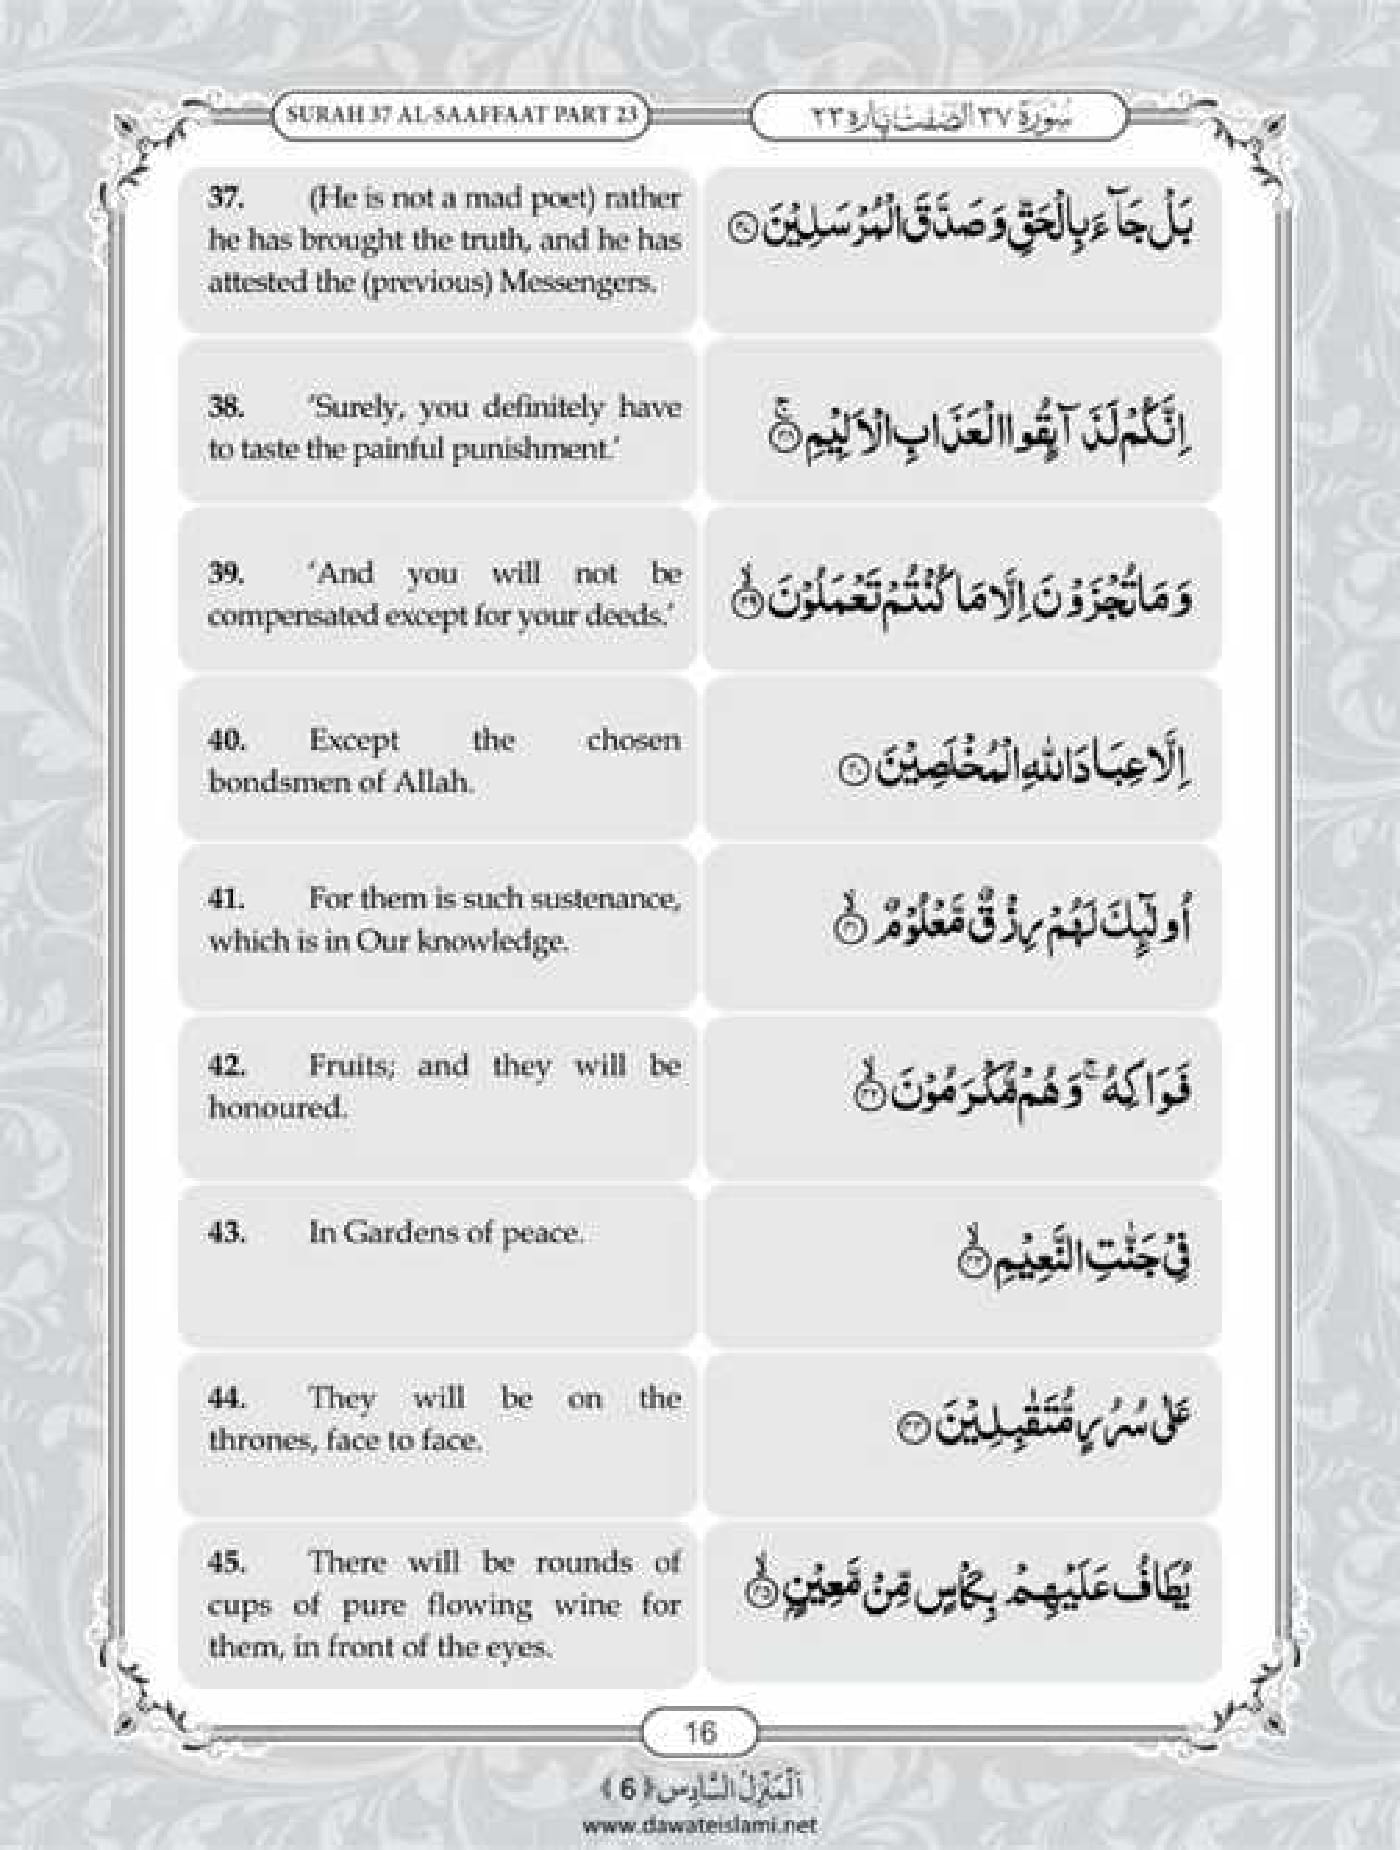 SURAH 37 AL-SAAFFAAT PART 23
سُوْرَة ٣٧ الصّٰفّٰت پاره ٢٣
37. (He is not a mad poet) rather
he has brought the truth, and he has
attested the (previous) Messengers.
بَلْ جَآءَ بِالْحَقِّ وَ صَدَّقَ الْمُرْسَلِیْنَ
38. ‘Surely, you definitely have
to taste the painful punishment.’
اِنَّكُمْ لَذَآىٕقُوا الْعَذَابِ الْاَلِیْمِۚ ٣٨
39. ‘And you will not be
compensated except for your deeds.’
وَ مَا تُجْزَوْنَ اِلَّا مَا كُنْتُمْ تَعْمَلُوْنَۙ ٣٩
40. Except the chosen
bondsmen of Allah.
اِلَّا عِبَادَ اللّٰهِ الْمُخْلَصِیْنَ ٤٠
41. For them is such sustenance,
which is in Our knowledge.
اُولٰٓىٕكَ لَهُمْ رِزْقٌ مَّعْلُوْمٌۙ ٤١
42. Fruits; and they will be
honoured.
فَوَاكِهُۚ وَ هُمْ مُّكْرَمُوْنَۙ ٤٢
43. In Gardens of peace.
فِیْ جَنّٰتِ النَّعِیْمِۙ ٤٣
44. They will be on the
thrones, face to face.
عَلٰى سُرُرٍ مُّتَقٰبِلِیْنَ ٤٤
45. There will be rounds of
cups of pure flowing wine for
them, in front of the eyes.
یُطَافُ عَلَیْهِمْ بِكَاْسٍ مِّنْ مَّعِیْنٍۙ ٤٥
16
اَلْمَنْزِلُ السَّادِس ﴿6﴾
www.dawateislami.net